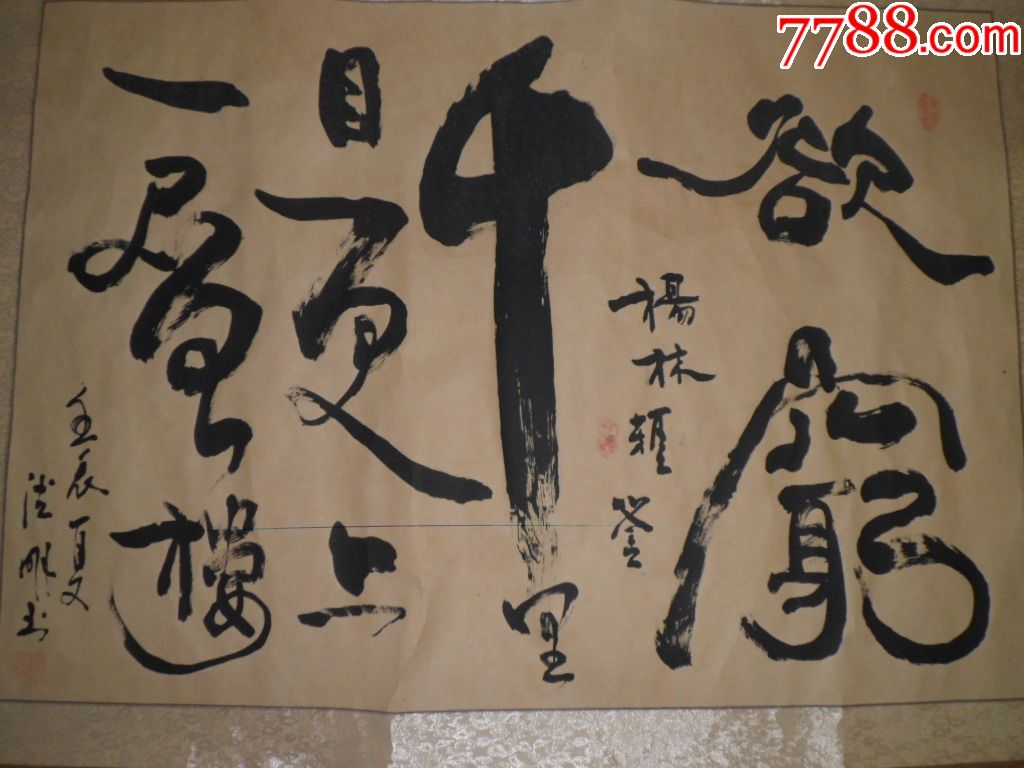 7788.com
欲窮
楊林
千里
目更上
一層樓
壬辰夏
德明书